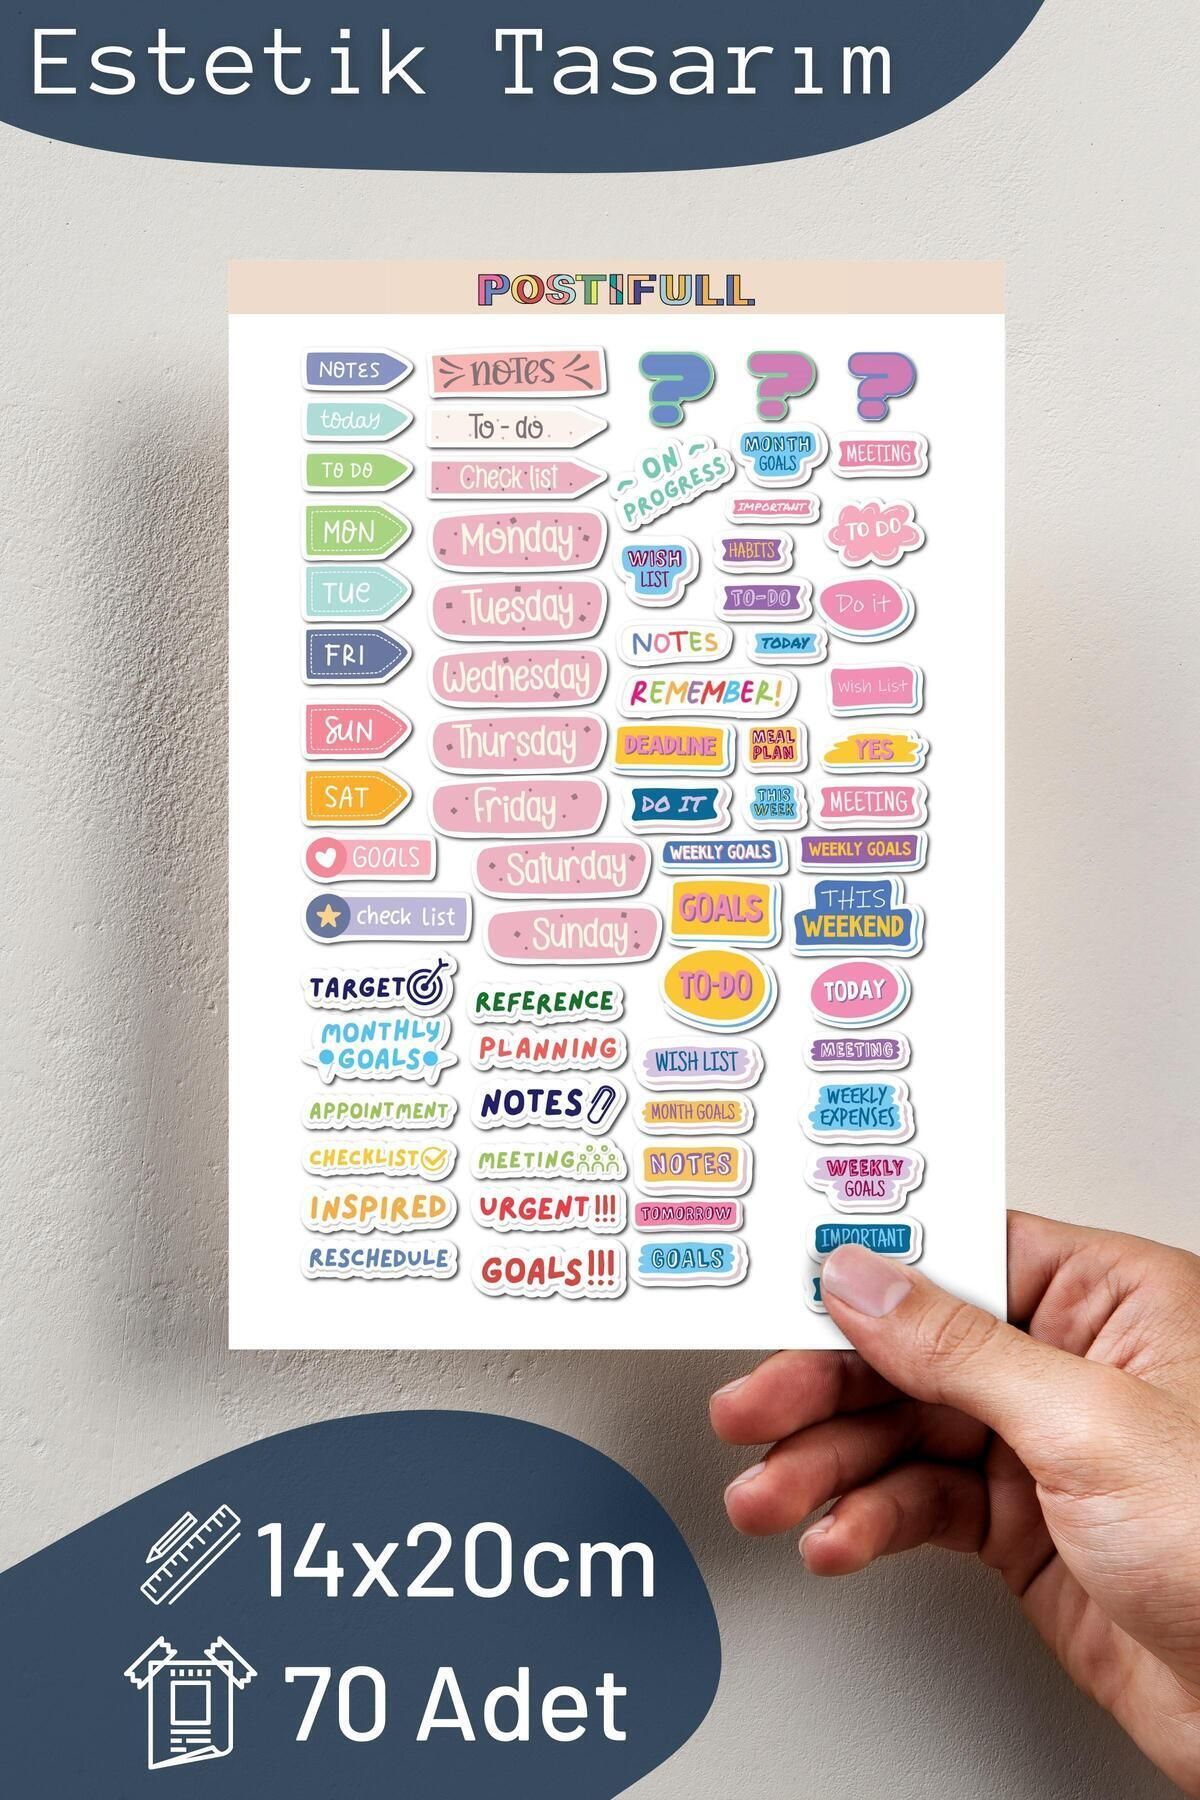 Estetik Tasarım
POSTIFULL
NOTES
today
TO DO
MON
TUE
FRI
SUN
SAT
GOALS
check list
notes
To-do
Check list
Monday
Tuesday
Wednesday
Thursday
Friday
Saturday
Sunday
? ? ?
ON
PROGRESS
MONTH
GOALS
MEETING
IMPORTANT
TO DO
WISH
LIST
HABITS
TO-DO
Do it
NOTES
TODAY
REMEMBER!
Wish List
DEADLINE
MEAL
PLAN
YES
DO IT
THIS
WEEK
MEETING
WEEKLY GOALS
WEEKLY GOALS
GOALS
THIS
WEEKEND
TO-DO
TODAY
TARGET
MONTHLY
GOALS
APPOINTMENT
CHECKLIST
INSPIRED
RESCHEDULE
REFERENCE
PLANNING
NOTES
MEETING
URGENT!!!
GOALS!!!
WISH LIST
MONTH GOALS
NOTES
TOMORROW
GOALS
MEETING
WEEKLY
EXPENSES
WEEKLY
GOALS
IMPORTANT
14x20cm
70 Adet